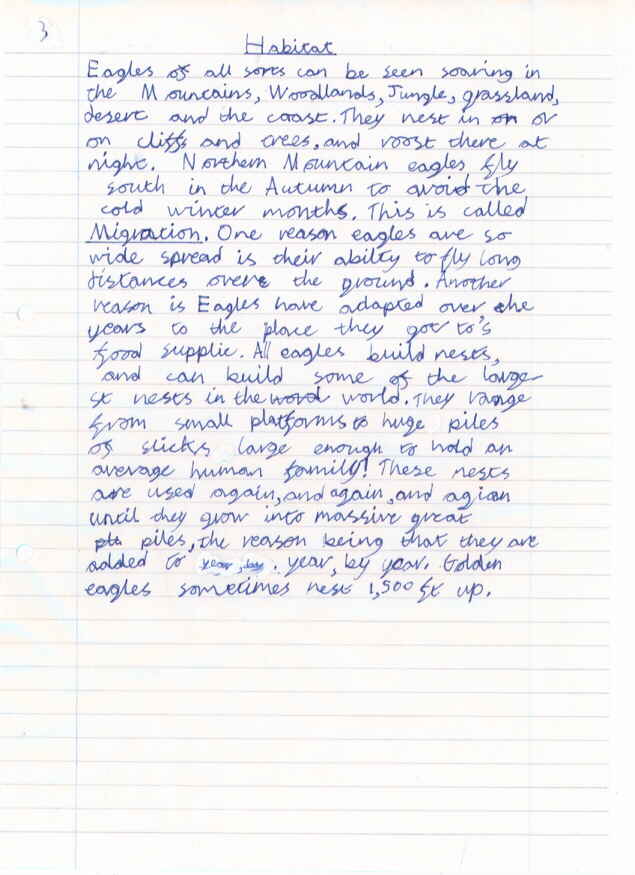 3
Habitat
Eagles of all sorts can be seen soaring in
the Mountains, Woodlands, Jungle, grassland,
desert and the coast. They nest in on or
on cliffs and trees, and roost there at
night. Northern Mountain eagles fly
south in the Autumn to avoid the
cold winter months. This is called
Migration. One reason eagles are so
wide spread is their abilty to fly long
distances over the ground. Another
reason is Eagles have adapted over, the
years to the place they got to's
food supplie. All eagles build nests,
and can build some of the large-
st nests in the word world. They range
from small platforms to huge piles
of sticks large enough to hold an
average human family! These nests
are used again, and again, and agian
until they grow into massive great
pls piles, the reason being that they are
added to year, by. year, by year. Golden
eagles sometimes nest 1,500 ft up.